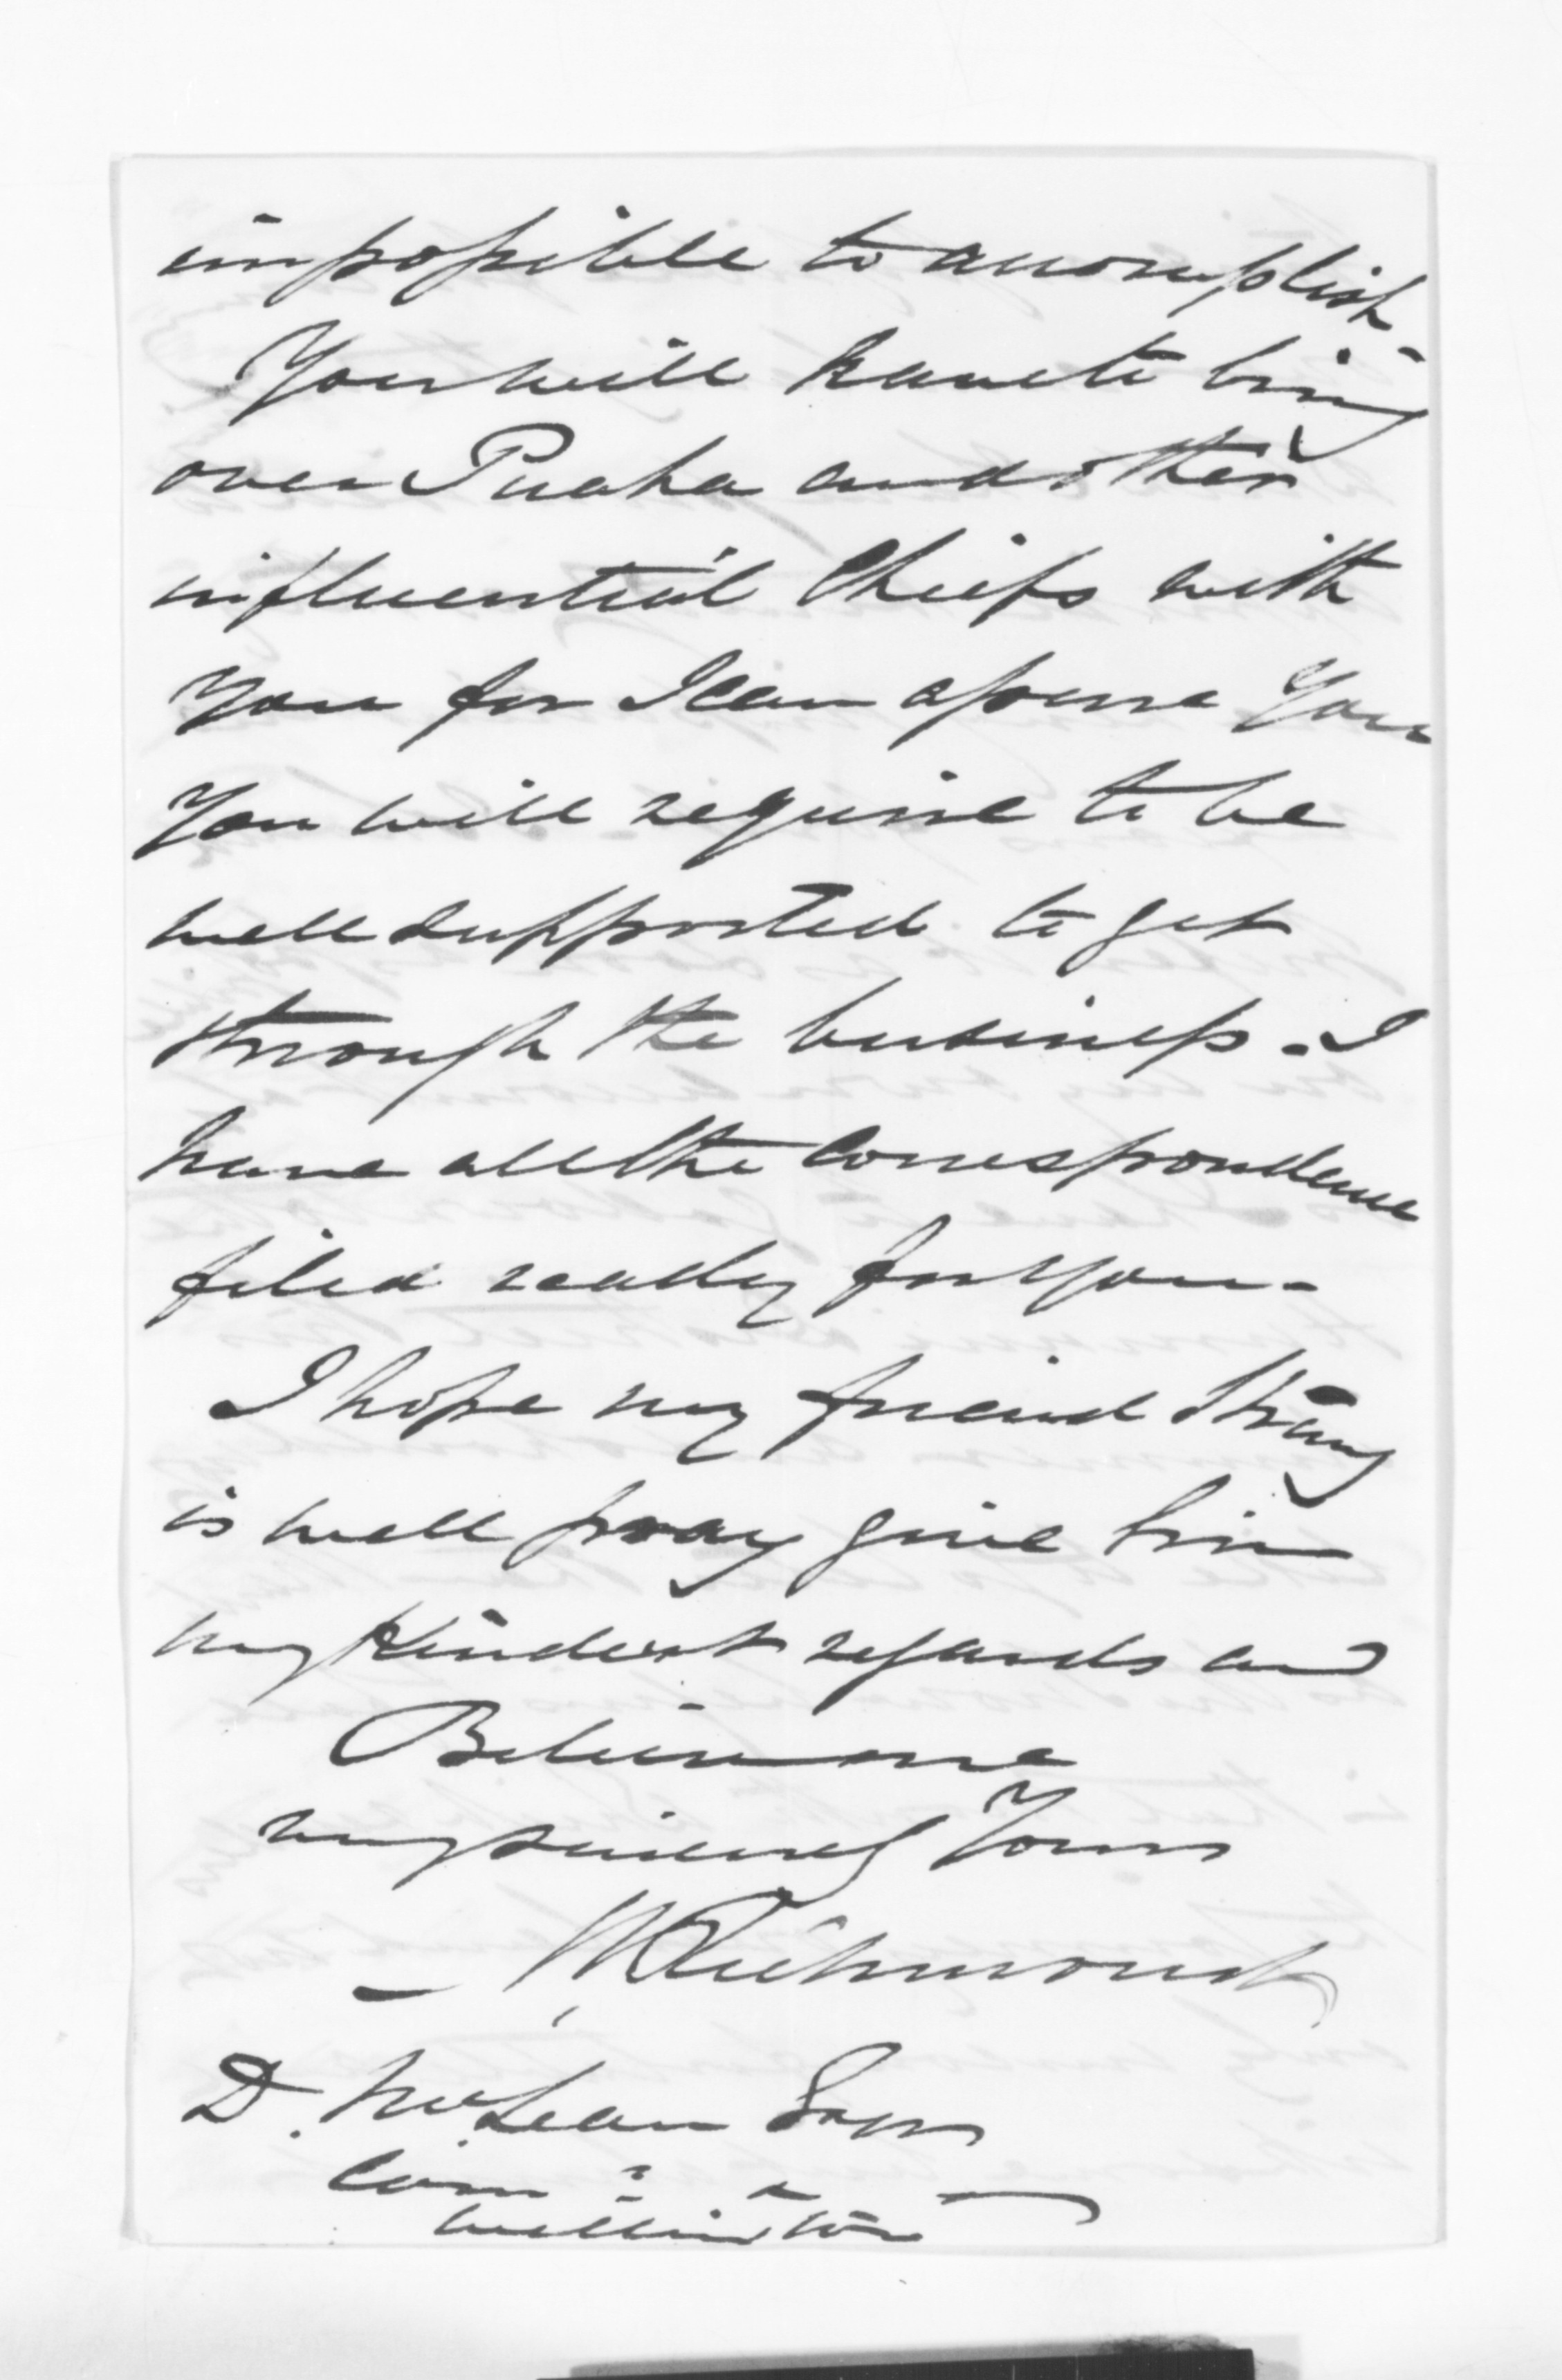 impossible to accomplish -
You will have to bring
over Puaha and other
influential Chiefs with
you for I can assure you
You will require to be
well supported to get
through the business. I
have all the Correspondence
filed ready for you -
I hope my friend Strang
is well pray give him
my Kindest regards and
Believe me
very sincerely Yours
M Richmond
D. McLean Esqr
Comr &
Wellington